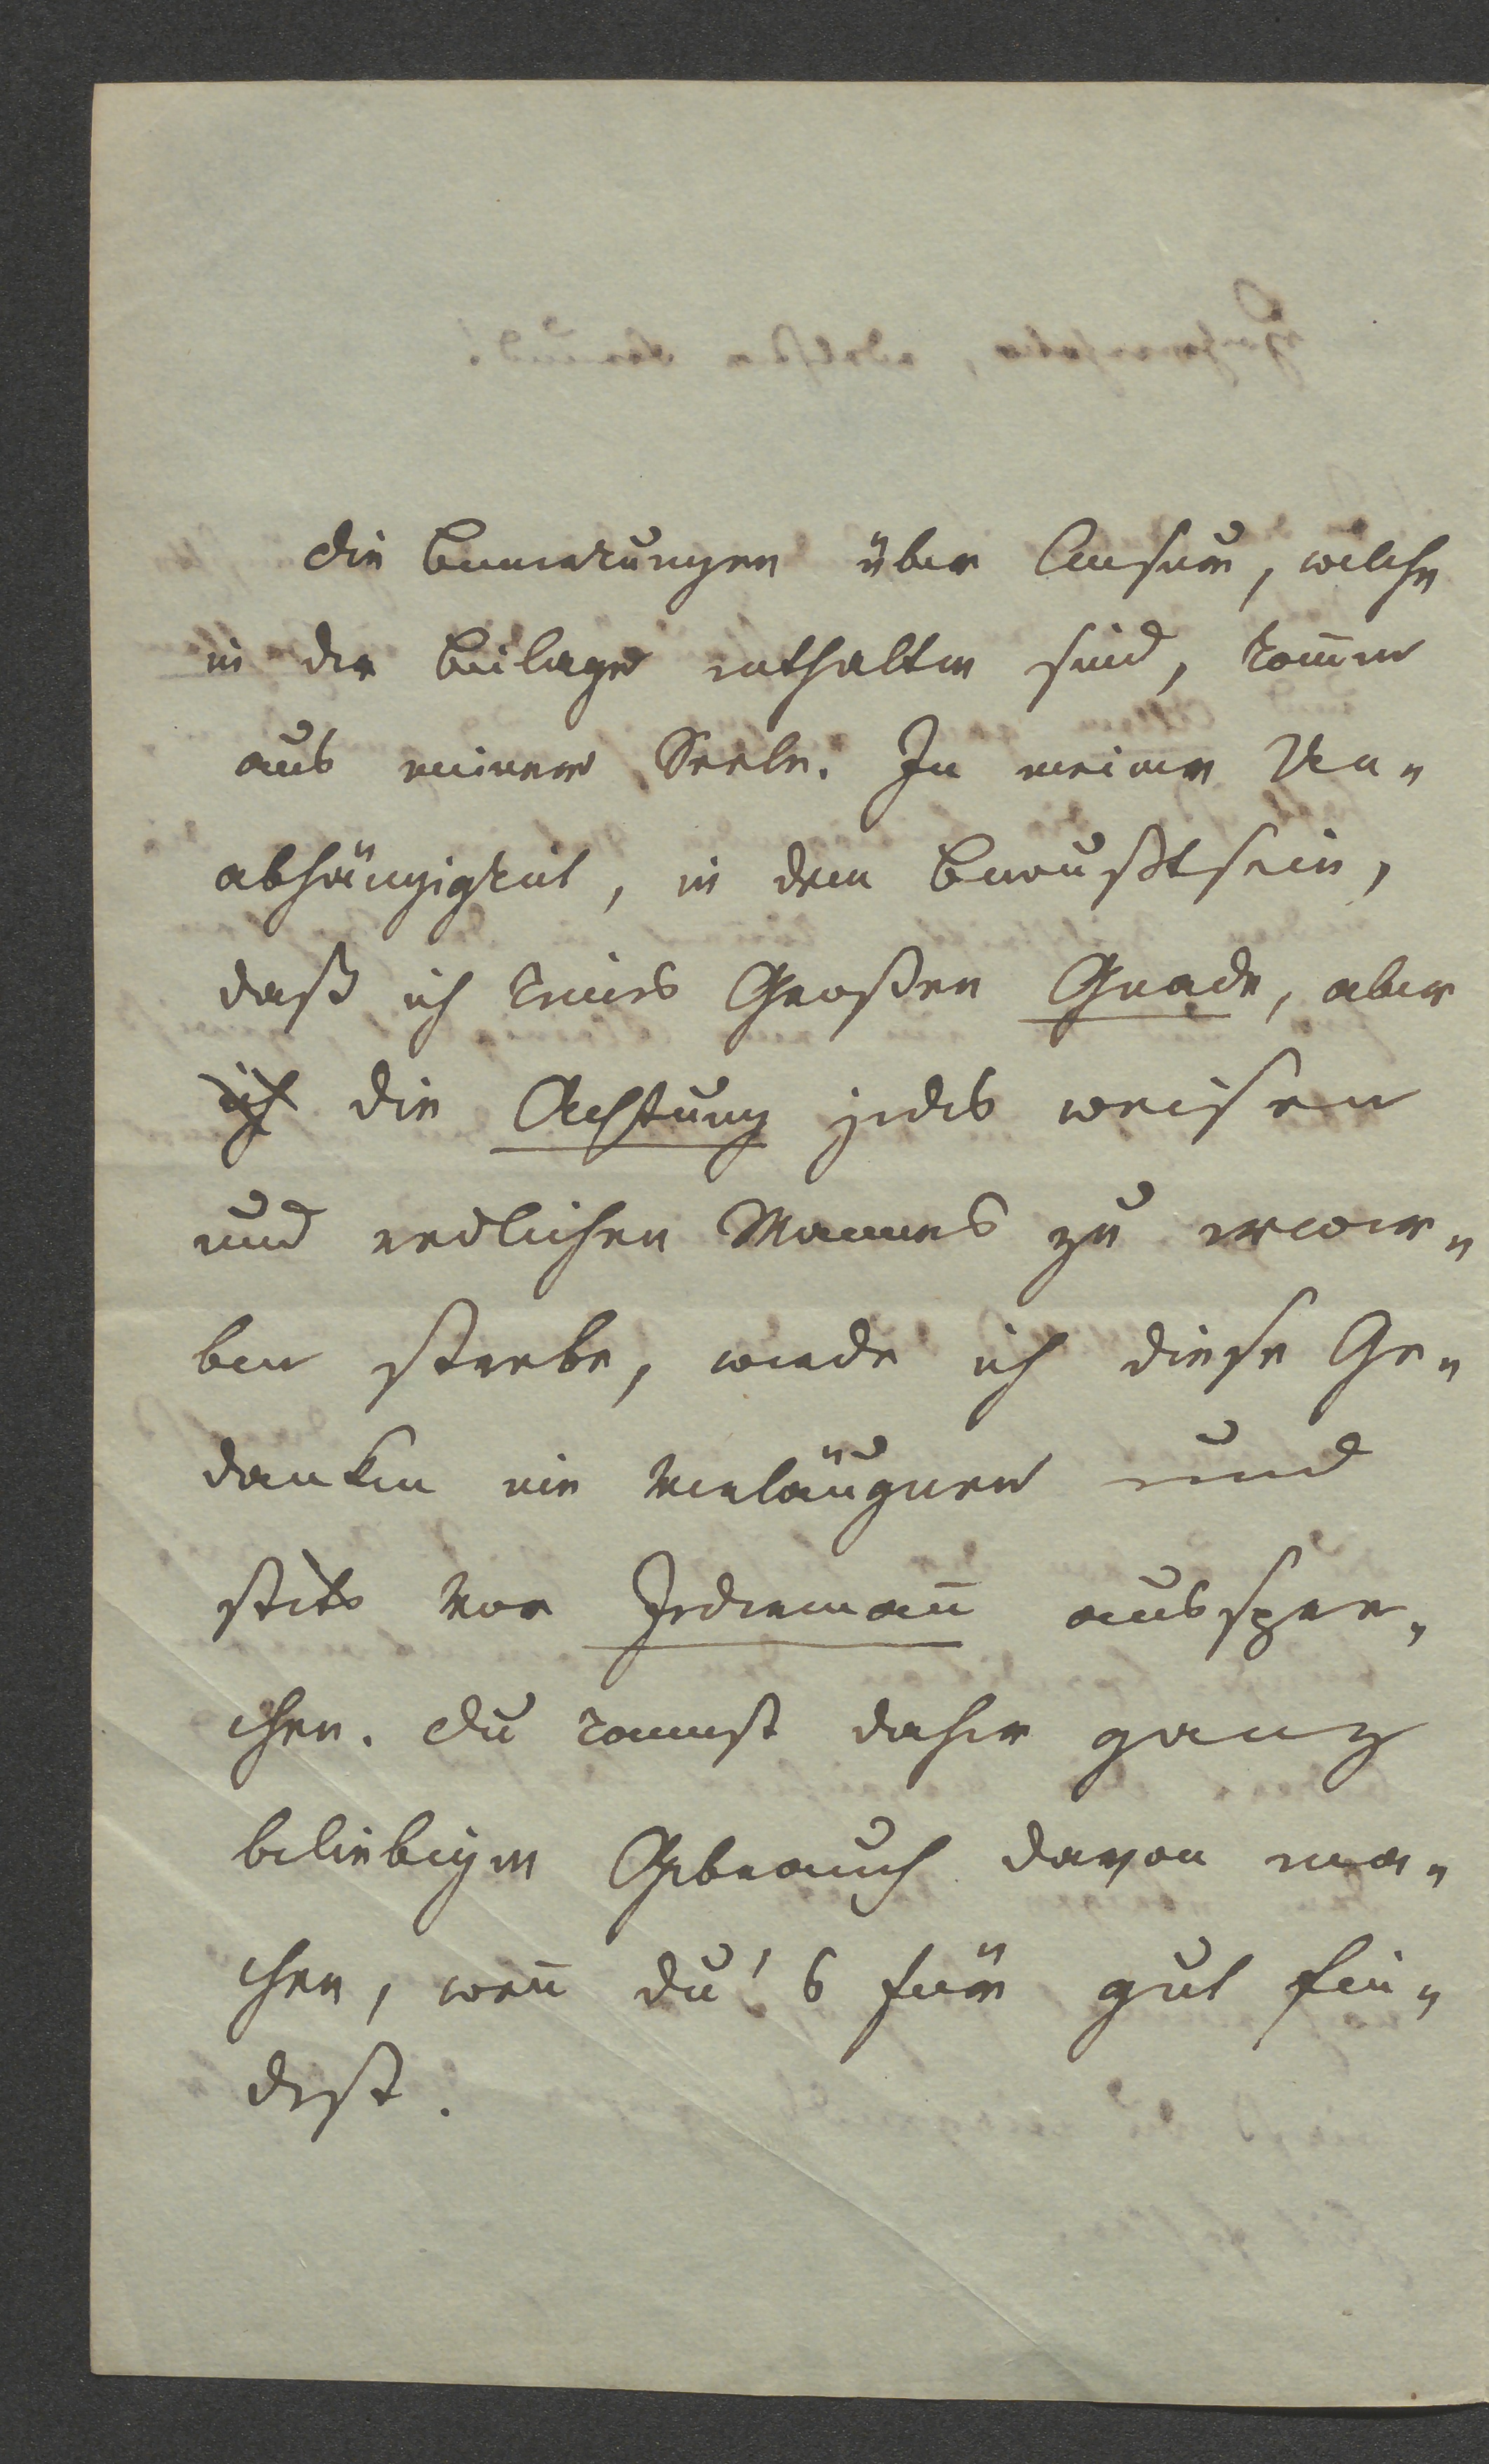 Die Bemerkungen über Censur, welche
in der Beilage enthalten sind, kom̅en
aus meiner Seele. In meiner Un„
abhängigkeit, in dem Bewußtsein,
daß ich keines Großen Gnade, aber
ich die Achtung jedes weisen
und redlichen Mannes zu erwer„
ben strebe, werde ich diese Ge„
danken nie verläugnen und
stets vor Jederman̅ ausspre„
chen. Du kannst daher ganz
beliebigen Gebrauch davon ma„
chen, wen̅ du's für gut fin„
dest.